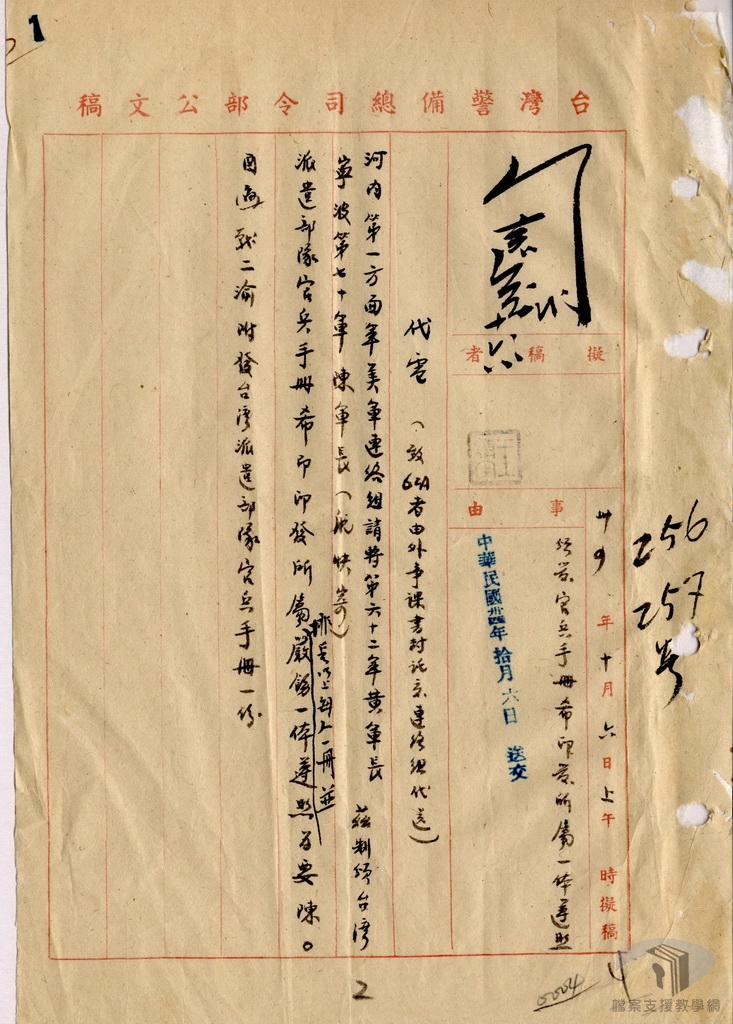 1
台灣警備總司令部公文稿
256
257号
卅四年十月六日上午 時擬稿
事由
頒發官兵手冊希印發所屬一体遵照
中華民國卅四年拾月六日 送交
擬稿者
十六
代電（致62A者由外事課書封託京連絡組代送）
河内第一方面軍美軍連絡組請將第六十二軍黃軍長
寧波第七十軍陳軍長（航快寄）
茲制頒台灣
派遣部隊官兵手冊希即印發所屬嚴飭一体遵照為要陳。
排長以上每人一冊並
附發台灣派遣部隊官兵手冊一份
2
0004
4
檔案支援教學網